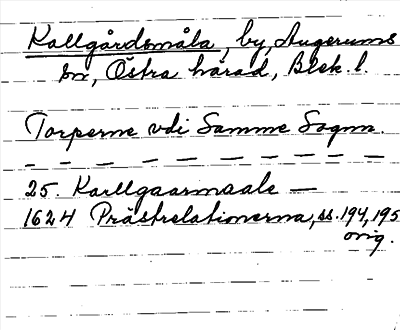 Kallgårdsmåla, by, Augerums
sn, Östra härad, Blek. l.
Torperne vdi Samme Sognn.
— — — — — — — — — —
25. Karllgaarmaale —
1624 Prästrelationerna, ss. 194, 195
orig.